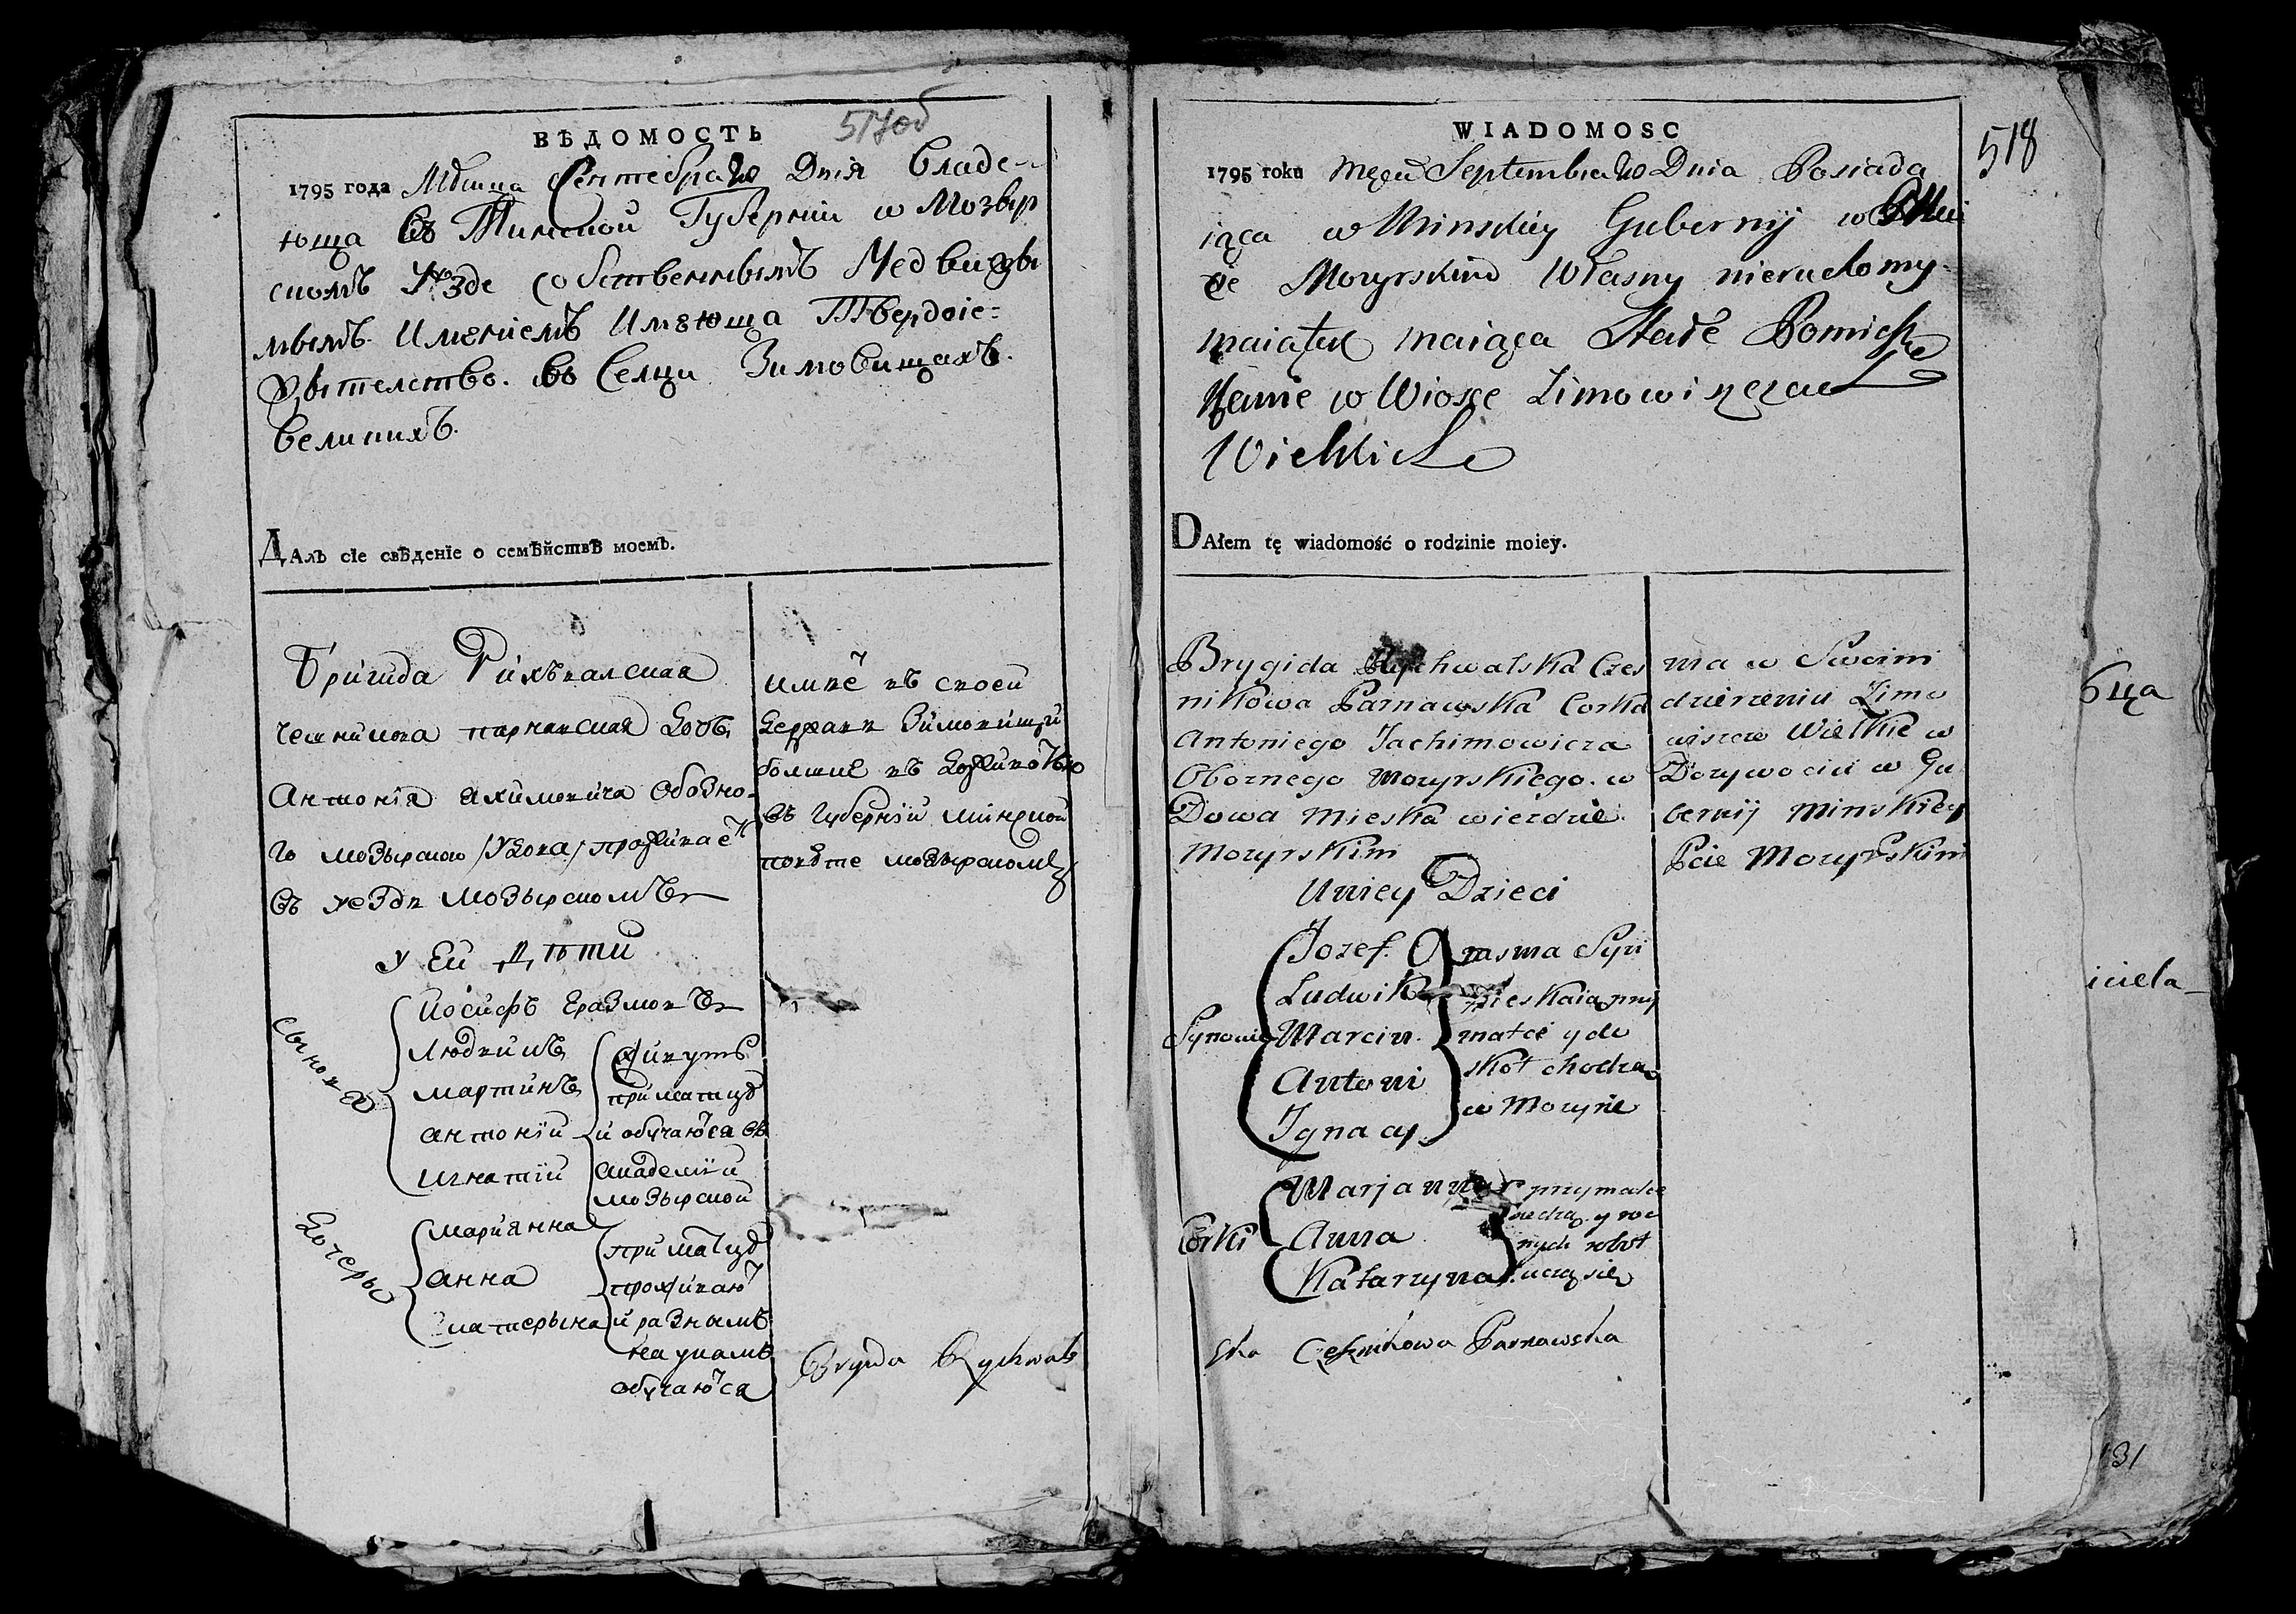 517об
ВѢДОМОСТЬ
1795 года Мѣсица Сентебра 20 Дния Владе-
юща въ Минской Губернии w Мозыр
скомъ Уѣзде Собственнымъ Недвизы
мымъ Имѣниемъ Имѣюща Твердоие=
Зытелство. во Селци Зимовищахъ.
Великихъ.
ДАлъ сïе свѣденïе о семѣйствѣ моемъ.
Бригида Рихвалская
чешникова парнавская дочь
Антонïя Яхимовича Обозно-
го мозырскаго /удова/ проживаетъ
въ уезди мозырскомъ
у Ей Дѣти
Сыновя
Иосифъ Еразмовъ
Людвикъ
мартинъ
антонïи
игнатïи
живутъ
при матцѣ
и обучаются въ
Академïи
мозырской
Дочеры
марианна
анна
катерына
при матцѣ
проживаютъ
и разнымъ
наукамъ
обучаются
имѣе въ своей
Держави Зимовищи
болшие въ Доживотью
въ Губернïи минской
повѣте мозырскомъ
Brygida Rychwals
WIADOMOSC
518
1795 roku Męca Septembra 20 Dnia Posiada
iąca w Minskiey Gubernij w
cie Mozyrskim Własny nieruchomy
maiątek maiąca Stałe Pomiesz
kanie w Wiosce Zimowiszczach
Wielkich
DAłem tę wiadomość o rodzinie moiey.
Brygida Rychwalska Czes
nikowa Parnawska Corka
Antoniego Jachimowicza
Oboznego Mozyrskiego. w
Dowa Mieska wiezdzie
Mozyrskim
U niey Dzieci
Synowie
Jozef.
Ludwik
Marcin.
Antoni
Ignacy
Erasma Syn
mieskaią przy
matce y do
skoł chodzą
w Mozyrze
Corki
Marjanna
Anna
Katarzyna
przy matce
siedzą y roz
nych robot
uczą się
ma w Swoim
dzierzeniu Zimo
wiszcze Wielkie w
Dozywociu w Gu
bernij Minskiey
Pcie Mozyrskim
ska Czesnikowa Parnawska
бца
iciela
131